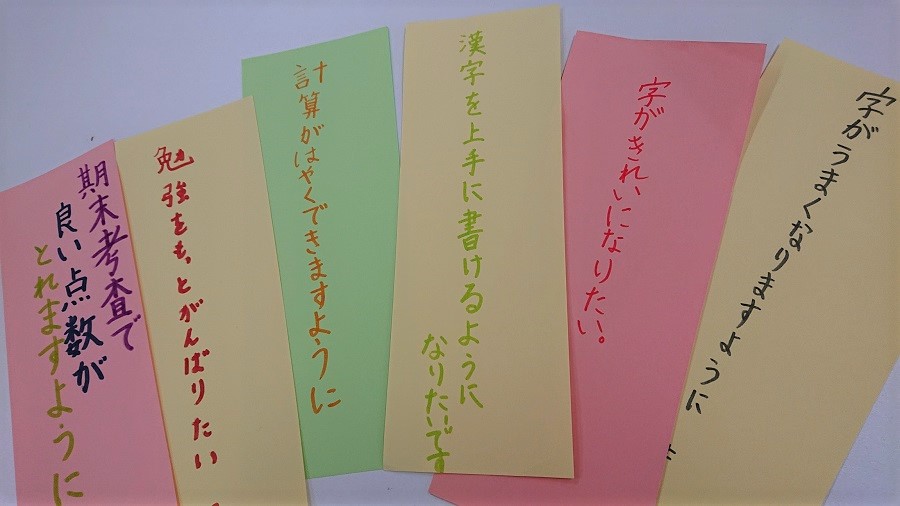 字がうまくなりますように
字がきれいになりたい。
漢字を上手に書けるように
なりたいです
計算がはやくできますように
勉強をもっとがんばりたい
期末考査で
良い点数が
とれますように